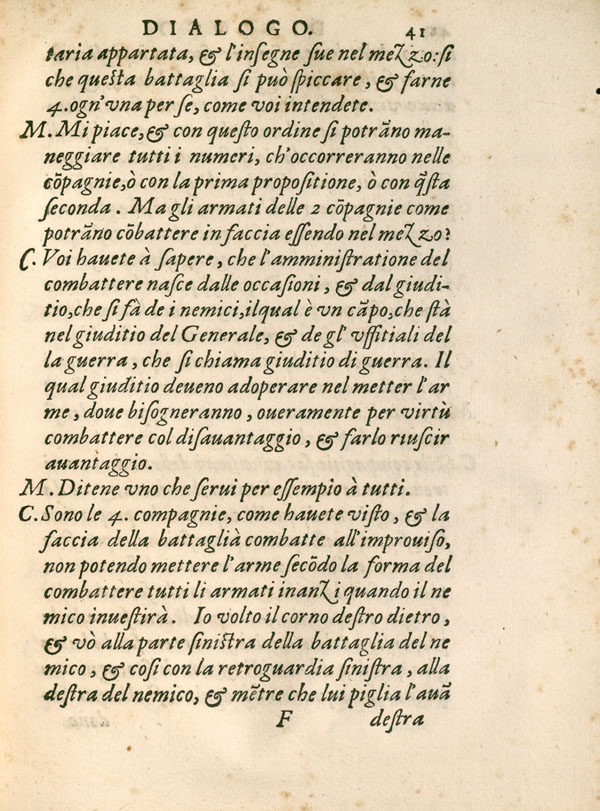 DIALOGO. 41
taria appartata, & l'insegne sue nel mezzo: si
che questa battaglia si può spiccare, & farne
4. ogn'vna per se, come voi intendete.
M. Mi piace, & con questo ordine si potrãno ma-
neggiare tutti i numeri, ch'occorreranno nelle
cõpagnie, ò con la prima propositione, ò con q̃sta
seconda. Ma gli armati delle 2 cõpagnie come
potrãno cõbattere in faccia essendo nel mezzo?
C. Voi hauete à sapere, che l'amministratione del
combattere nasce dalle occasioni, & dal giudi-
tio, che si fà de i nemici, ilqual è vn cãpo, che stà
nel giuditio del Generale, & de gl' vffitiali del
la guerra, che si chiama giuditio di guerra. Il
qual giuditio deueno adoperare nel metter l'ar
me, doue bisogneranno, oueramente per virtù
combattere col disauantaggio, & farlo riuscir
auantaggio.
M. Ditene vno che serui per essempio à tutti.
C. Sono le 4. compagnie, come hauete visto, & la
faccia della battaglià combatte all'improuiso,
non potendo mettere l'arme secõdo la forma del
combattere tutti li armati inanzi quando il ne
mico inuestirà. Io volto il corno destro dietro,
& vò alla parte sinistra della battaglia del ne
mico, & cosi con la retroguardia sinistra, alla
destra del nemico, & mẽtre che lui piglia l'auã
F destra